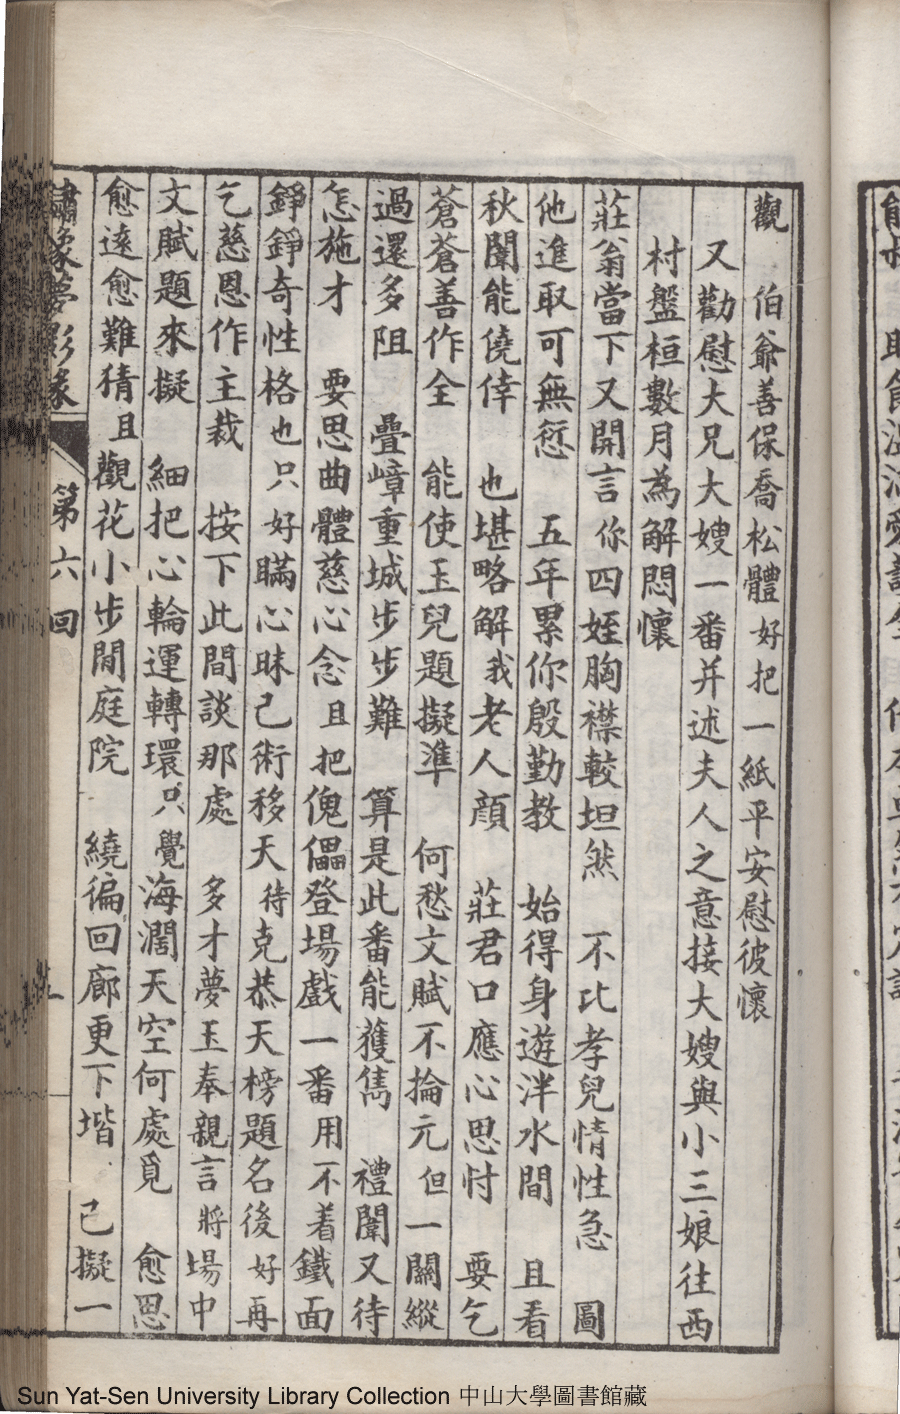 觀　伯爺善保喬松體好把一紙平安慰彼懷
又勸慰大兄大嫂一番并述夫人之意接大嫂與小三娘往西
村盤桓數月為解悶懷
莊翁當下又開言你四姪胸襟較坦然　不比孝兒情性急　圖
他進取可無愆　五年累你殷勤教　始得身遊泮水間　且看
秋闈能僥倖　也堪略解我老人顏　莊君口應心思忖　要乞
蒼蒼善作全　能使玉兒題擬準　何愁文賦不掄元但一關縱
過還多阻　疊嶂重城步步難　算是此番能獲雋　禮闈又待
怎施才　要思曲體慈心念且把傀儡登場戲一番用不着鐵面
錚錚奇性格也只好瞞心昧己術移天待克恭天榜題名後好再
乞慈恩作主裁　按下此間談那處　多才夢玉奉親言將場中
文賦題來擬　細把心輪運轉環只覺海濶天空何處覓　愈思
愈遠愈難猜且觀花小步閒庭院　繞徧回廊更下堦　已擬一
繡像夢影緣　第六回
Sun Yat-Sen University Library Collection 中山大學圖書館藏